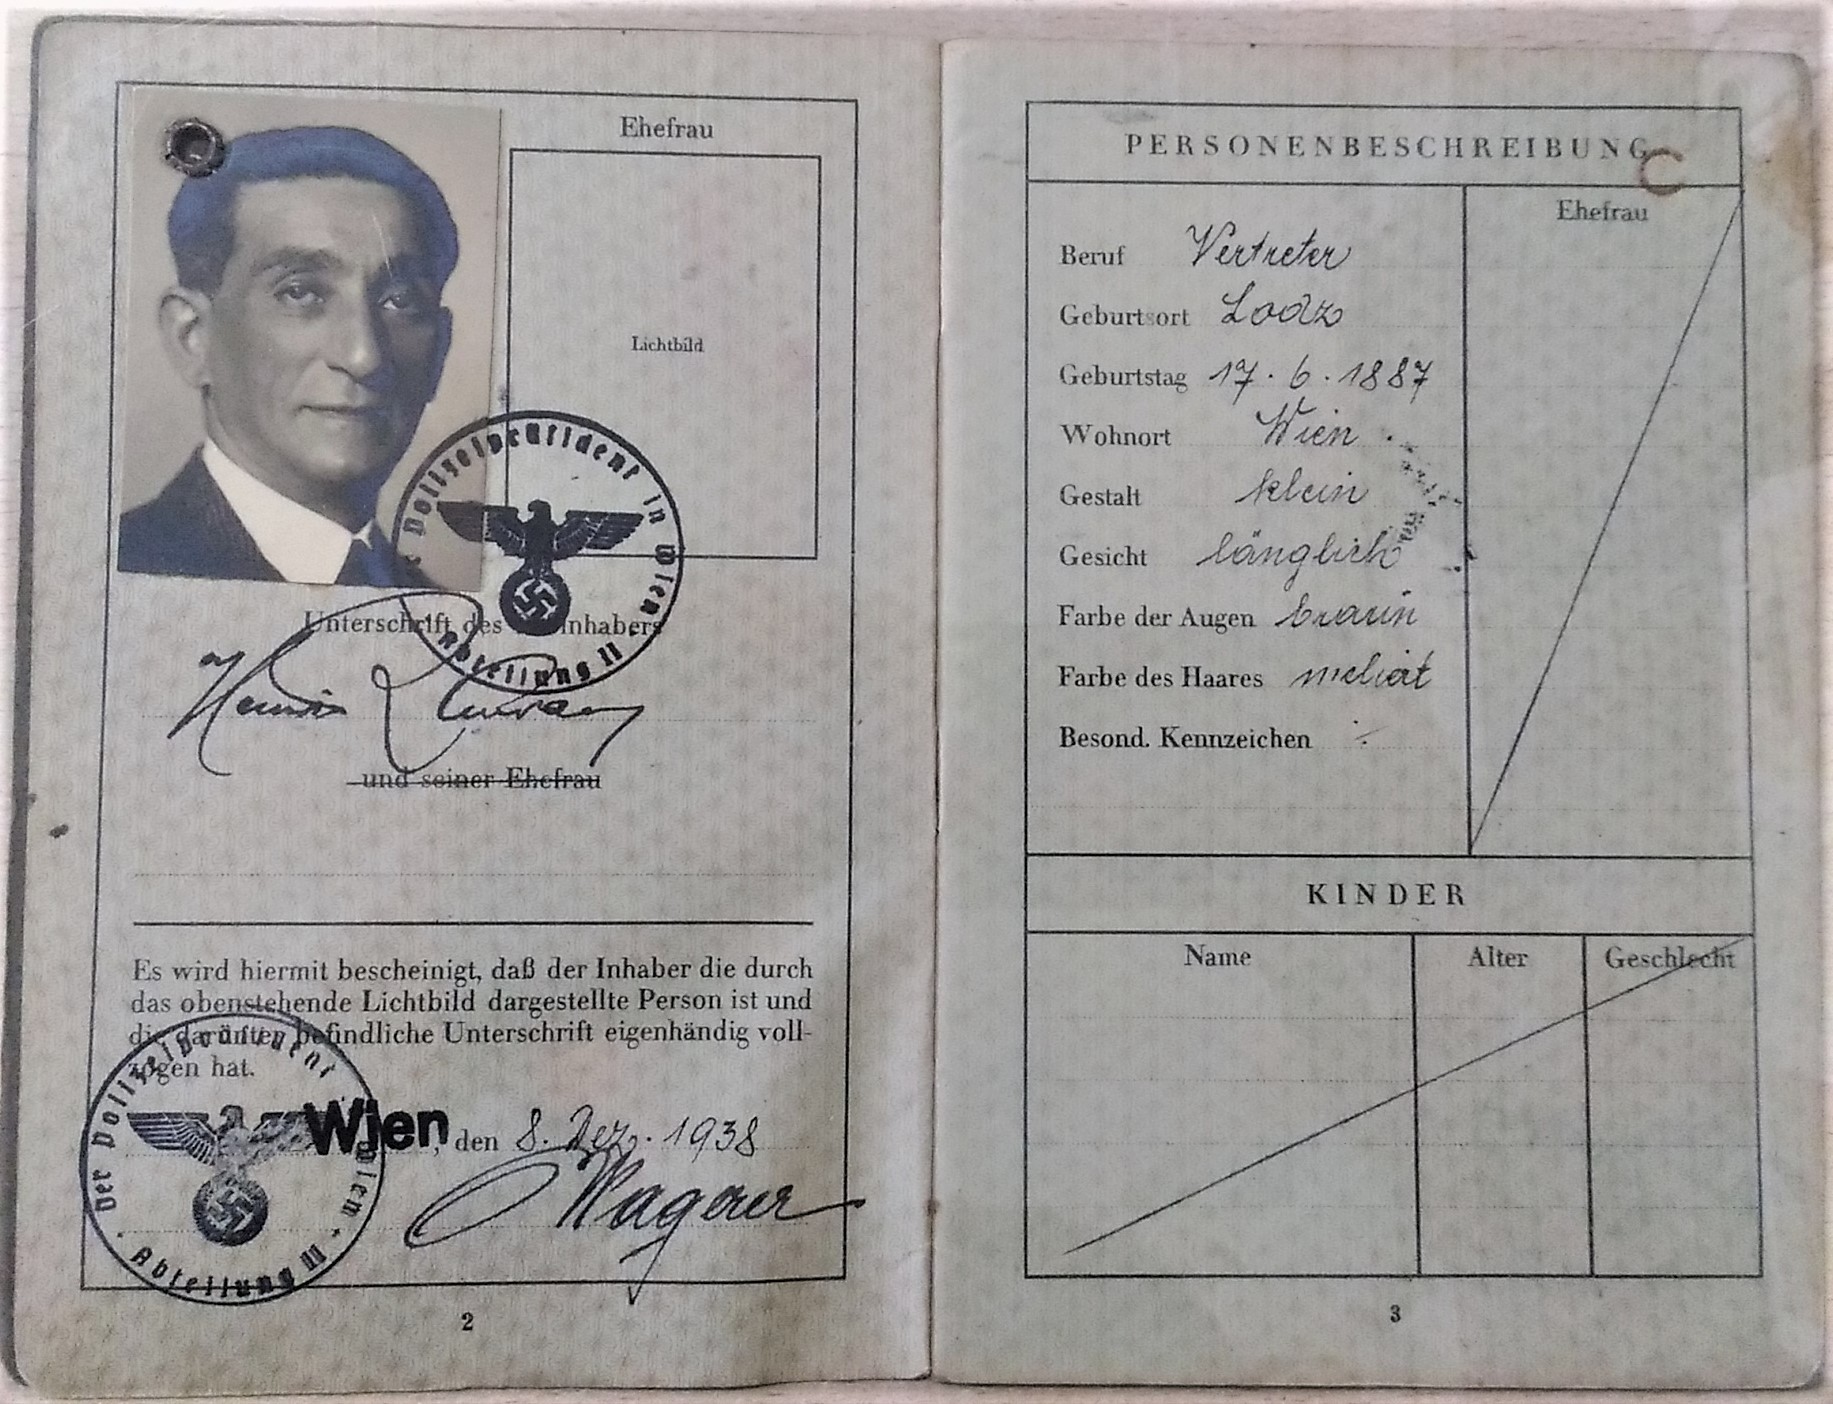 Ehefrau
Lichtbild
Polizeipräsident in Wien
Abteilung II
Unterschrift des Paßinhabers
und seiner Ehefrau
Es wird hiermit bescheinigt, daß der Inhaber die durch
das obenstehende Lichtbild dargestellte Person ist und
die darunter befindliche Unterschrift eigenhändig voll-
zogen hat.
Wien, den 8. Dez. 1938
Der Polizeipräsident Wien
Abteilung II
Wagner
2
PERSONENBESCHREIBUNG
Ehefrau
Beruf Vertreter
Geburtsort Lodz
Geburtstag 17. 6. 1887
Wohnort Wien
Gestalt klein
Gesicht länglich
Farbe der Augen braun
Farbe des Haares meliert
Besond. Kennzeichen ÷
KINDER
Name Alter Geschlecht
3